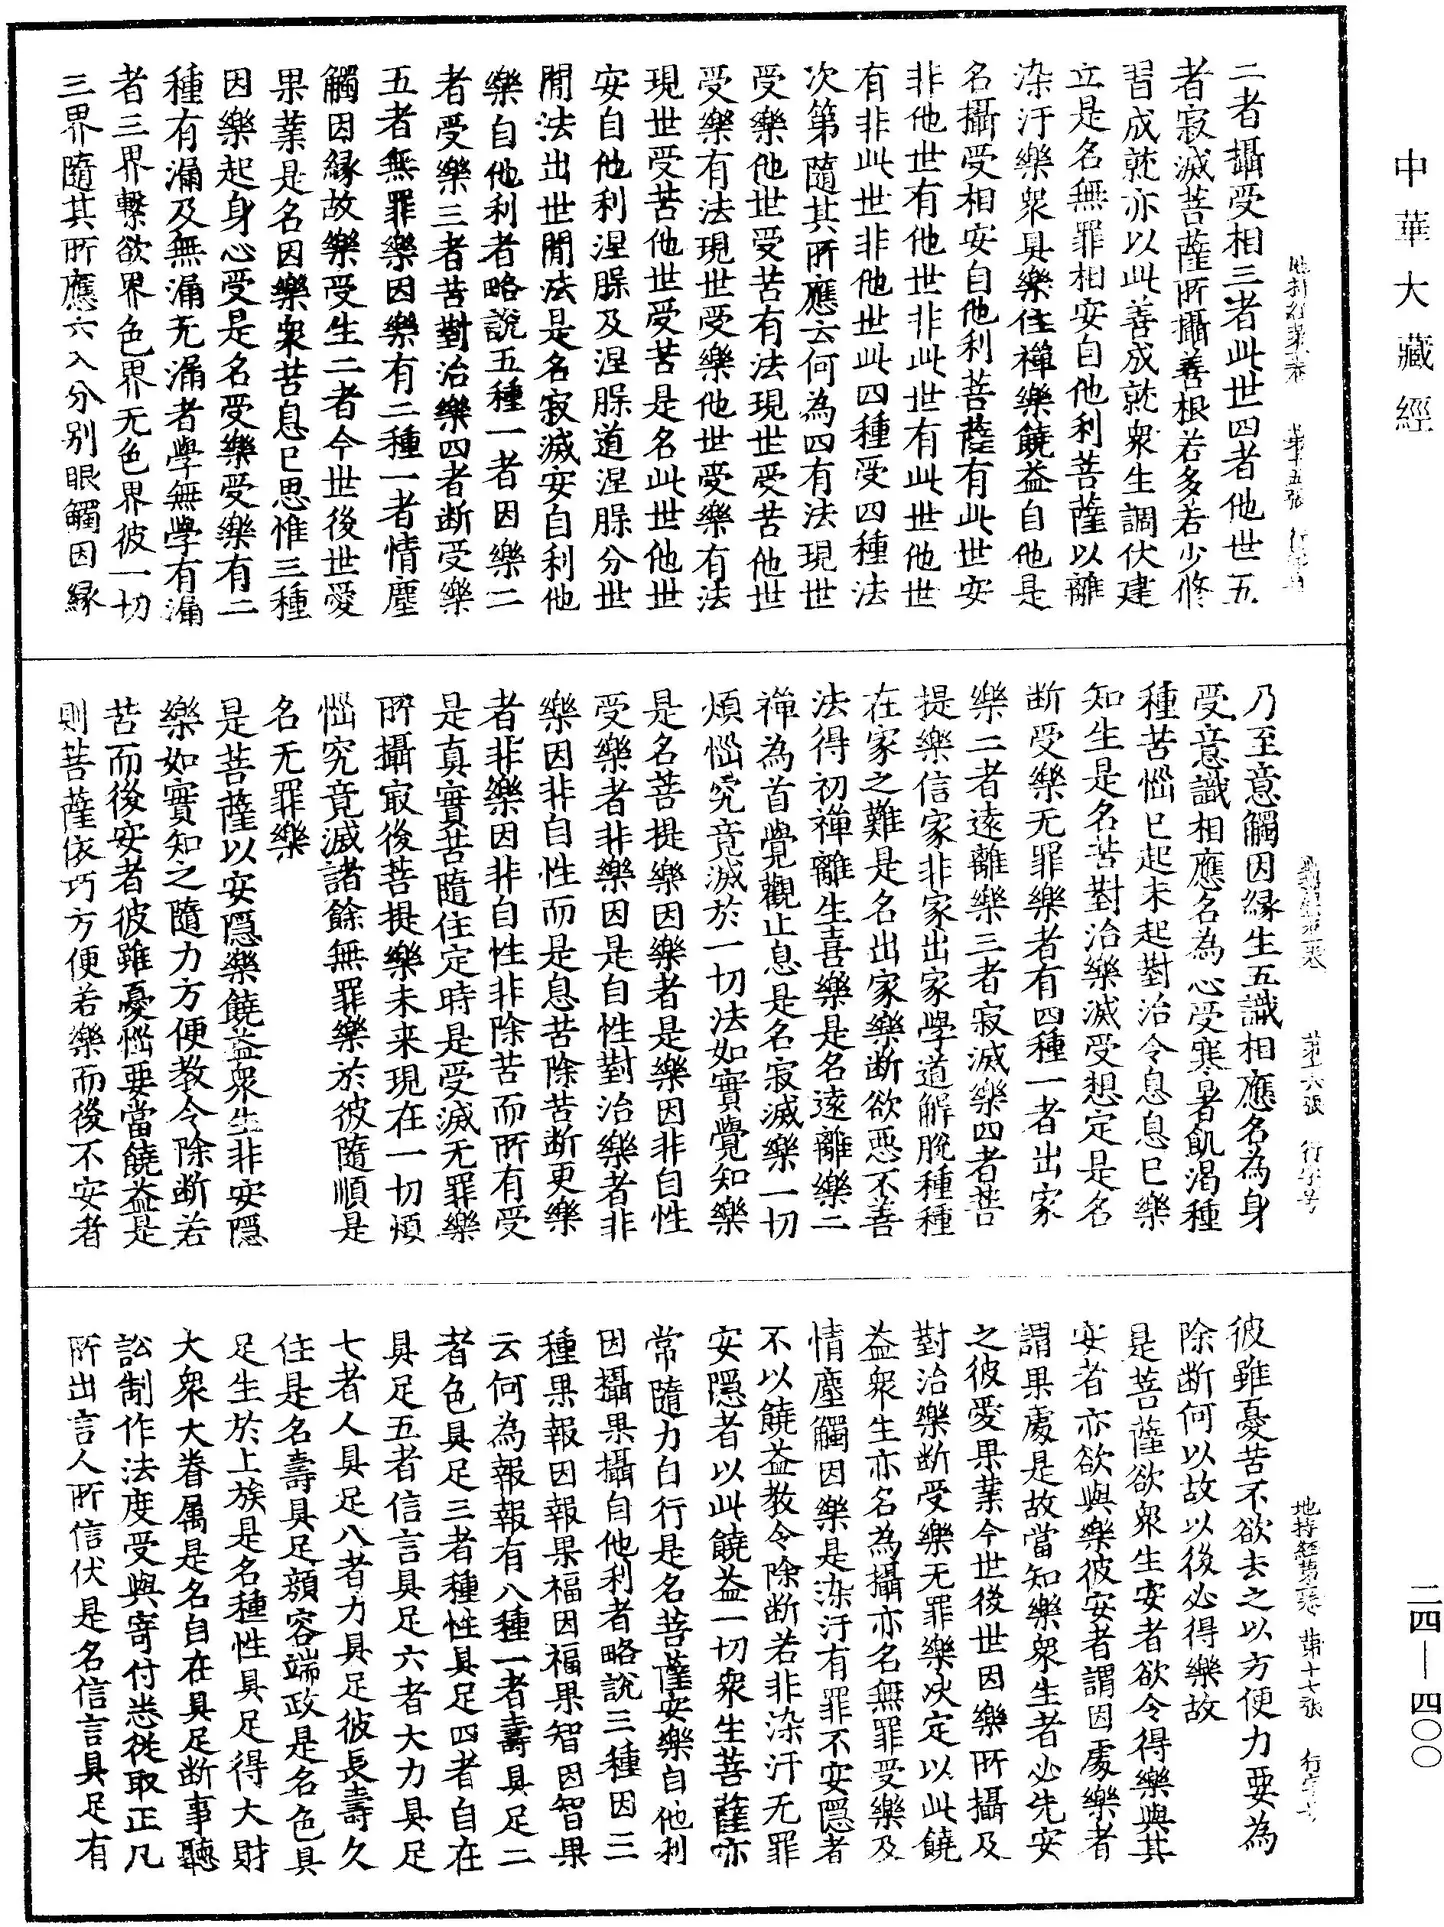 中華大藏經
二者攝受相三者此世四者他世五
者寂滅菩薩所攝善根若多若少修
習成就亦以此善成就衆生調伏建
立是名無罪相安自他利菩薩以離
染汙樂衆具樂住禪樂饒益自他是
名攝受相安自他利菩薩有此世安
非他世有他世非此世有此世他世
有非此世非他世此四種受四種法
次第隨其所應云何為四有法現世
受樂他世受苦有法現世受苦他世
受樂有法現世受樂他世受樂有法
現世受苦他世受苦是名此世他世
安自他利涅脲及涅脲道涅脲分世
間法出世間法是名寂滅安自利他
樂自他利者略說五種一者因樂二
者受樂三者苦對治樂四者断受樂
五者無罪樂因樂有二種一者情塵
觸因縁故樂受生二者今世後世愛
果業是名因樂衆苦息已思惟三種
因樂起身心受是名受樂受樂有二
種有漏及無漏无漏者學無學有漏
者三界繫欲界色界无色界彼一切
三界隨其所應六入分别眼觸因縁
乃至意觸因縁生五識相應名為身
受意識相應名為心受寒暑飢渴種
種苦惱已起未起對治令息息已樂
知生是名苦對治樂滅受想定是名
断受樂无罪樂者有四種一者出家
樂二者遠離樂三者寂滅樂四者菩
提樂信家非家出家學道解脫種種
在家之難是名出家樂断欲惡不善
法得初禪離生喜樂是名遠離樂二
禪為首覺觀止息是名寂滅樂一切
煩惱究竟滅於一切法如實覺知樂
是名菩提樂因樂者是樂因非自性
受樂者非樂因是自性對治樂者非
樂因非自性而是息苦除苦断更樂
者非樂因非自性非除苦而所有受
是真實苦隨住定時是受滅无罪樂
所攝冣後菩提樂未来現在一切煩
惱究竟滅諸餘無罪樂於彼隨順是
名无罪樂
是菩薩以安隱樂饒益衆生非安隱
樂如實知之隨力方便教令除断若
苦而後安者彼雖憂惱要當饒益是
則菩薩依巧方便若樂而後不安者
地持經第二卷 第十七張 行字号
彼雖憂苦不欲去之以方便力要為
除断何以故以後必得樂故
是菩薩欲衆生安者欲令得樂與其
安者亦欲與樂彼安者謂因處樂者
謂果處是故當知樂衆生者必先安
之彼愛果業今世後世因樂所攝及
對治樂断受樂无罪樂决定以此饒
益衆生亦名為攝亦名無罪受樂及
情塵觸因樂是染汙有罪不安隱者
不以饒益教令除断若非染汙无罪
安隱者以此饒益一切衆生菩薩亦
常隨力自行是名菩薩安樂自他利
因攝果攝自他利者略說三種因三
種果報因報果福因福果智因智果
云何為報報有八種一者壽具足二
者色具足三者種性具足四者自在
具足五者信言具足六者大力具足
七者人具足八者力具足彼長壽久
住是名壽具足顔容端政是名色具
足生於上族是名種性具足得大財
大衆大眷属是名自在具足断事聽
訟制作法度受與寄付悉從取正凡
所出言人所信伏是名信言具足有
二四—四〇〇